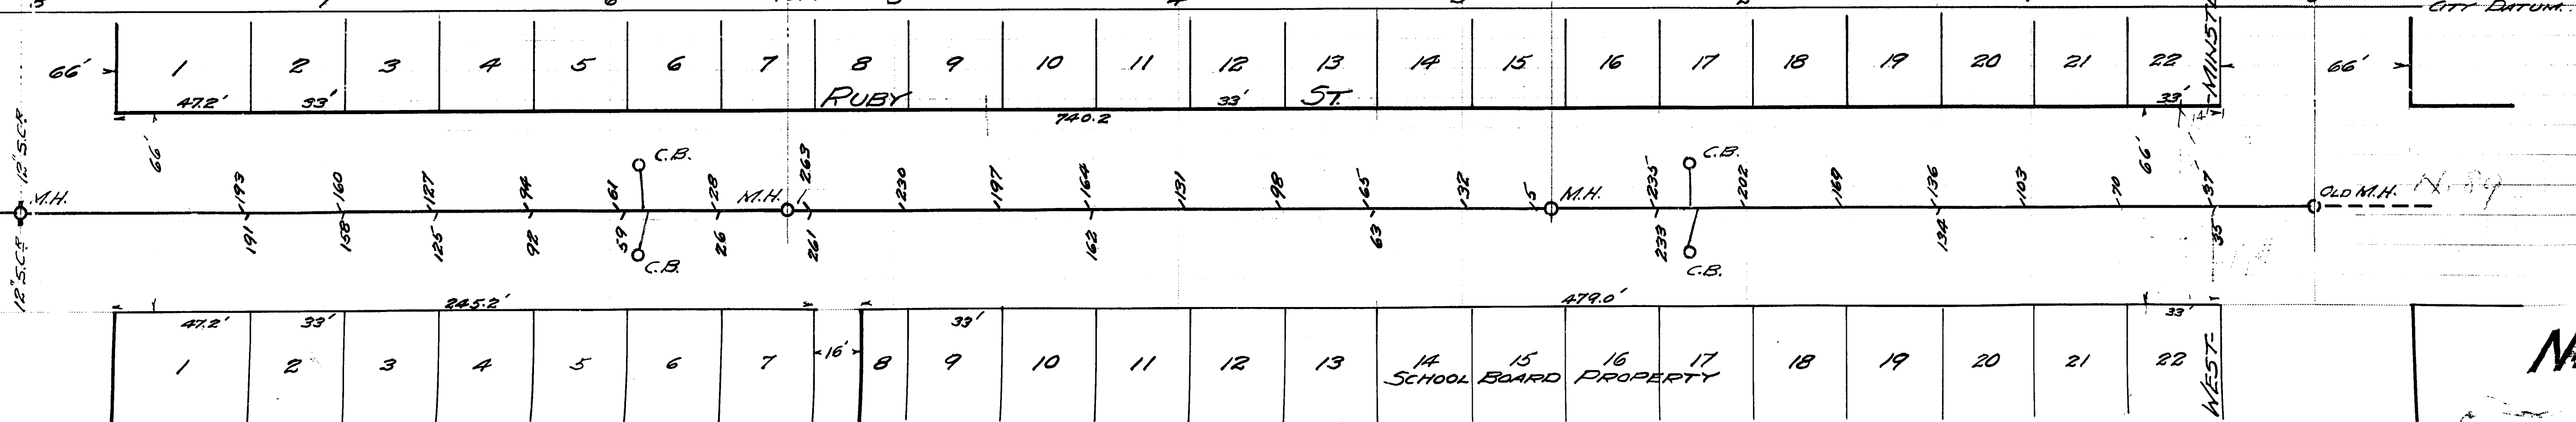 CITY DATUM.
66' 1 2 3 4 5 6 7 8 9 10 11 12 13 14 15 16 17 18 19 20 21 22 66'
47.2' 33' RUBY 33' ST. 33'
740.2
66' 66'
12" S.C.R.
C.B. C.B.
M.H. 193 160 127 94 61 28 M.H. 1 263 230 197 164 131 98 65 132 15 M.H. 235 202 169 136 103 70 137 OLD M.H. N. 89
191 158 125 92 59 26 261 162 63 233 134 35
C.B. C.B.
12" S.C.R.
245.2' 479.0'
47.2' 33' 33' 33'
1 2 3 4 5 6 7 16' 8 9 10 11 12 13 14 15 16 17 18 19 20 21 22
SCHOOL BOARD PROPERTY
WEST-